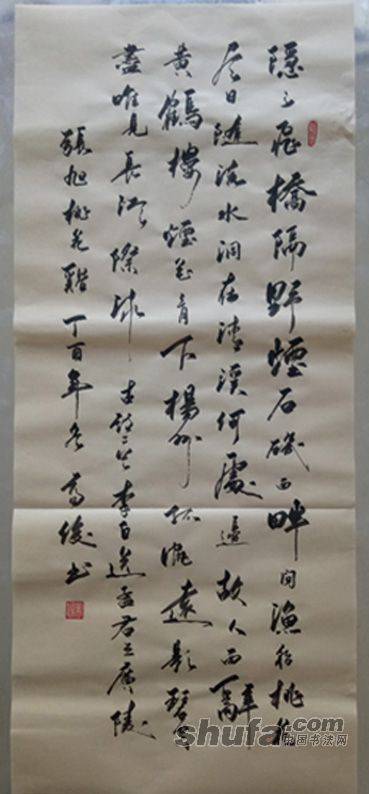 隱々飛橋隔野煙石磯西畔問漁船桃花
尽日隨流水洞在清溪何處邊故人西辭
黄鶴樓煙花三月下楊州孤帆遠影碧空
盡唯見長江天際流古诗二首李白送孟君之廣陵
張旭桃花谿丁酉年冬高俊书
shufa.com
中国书法网